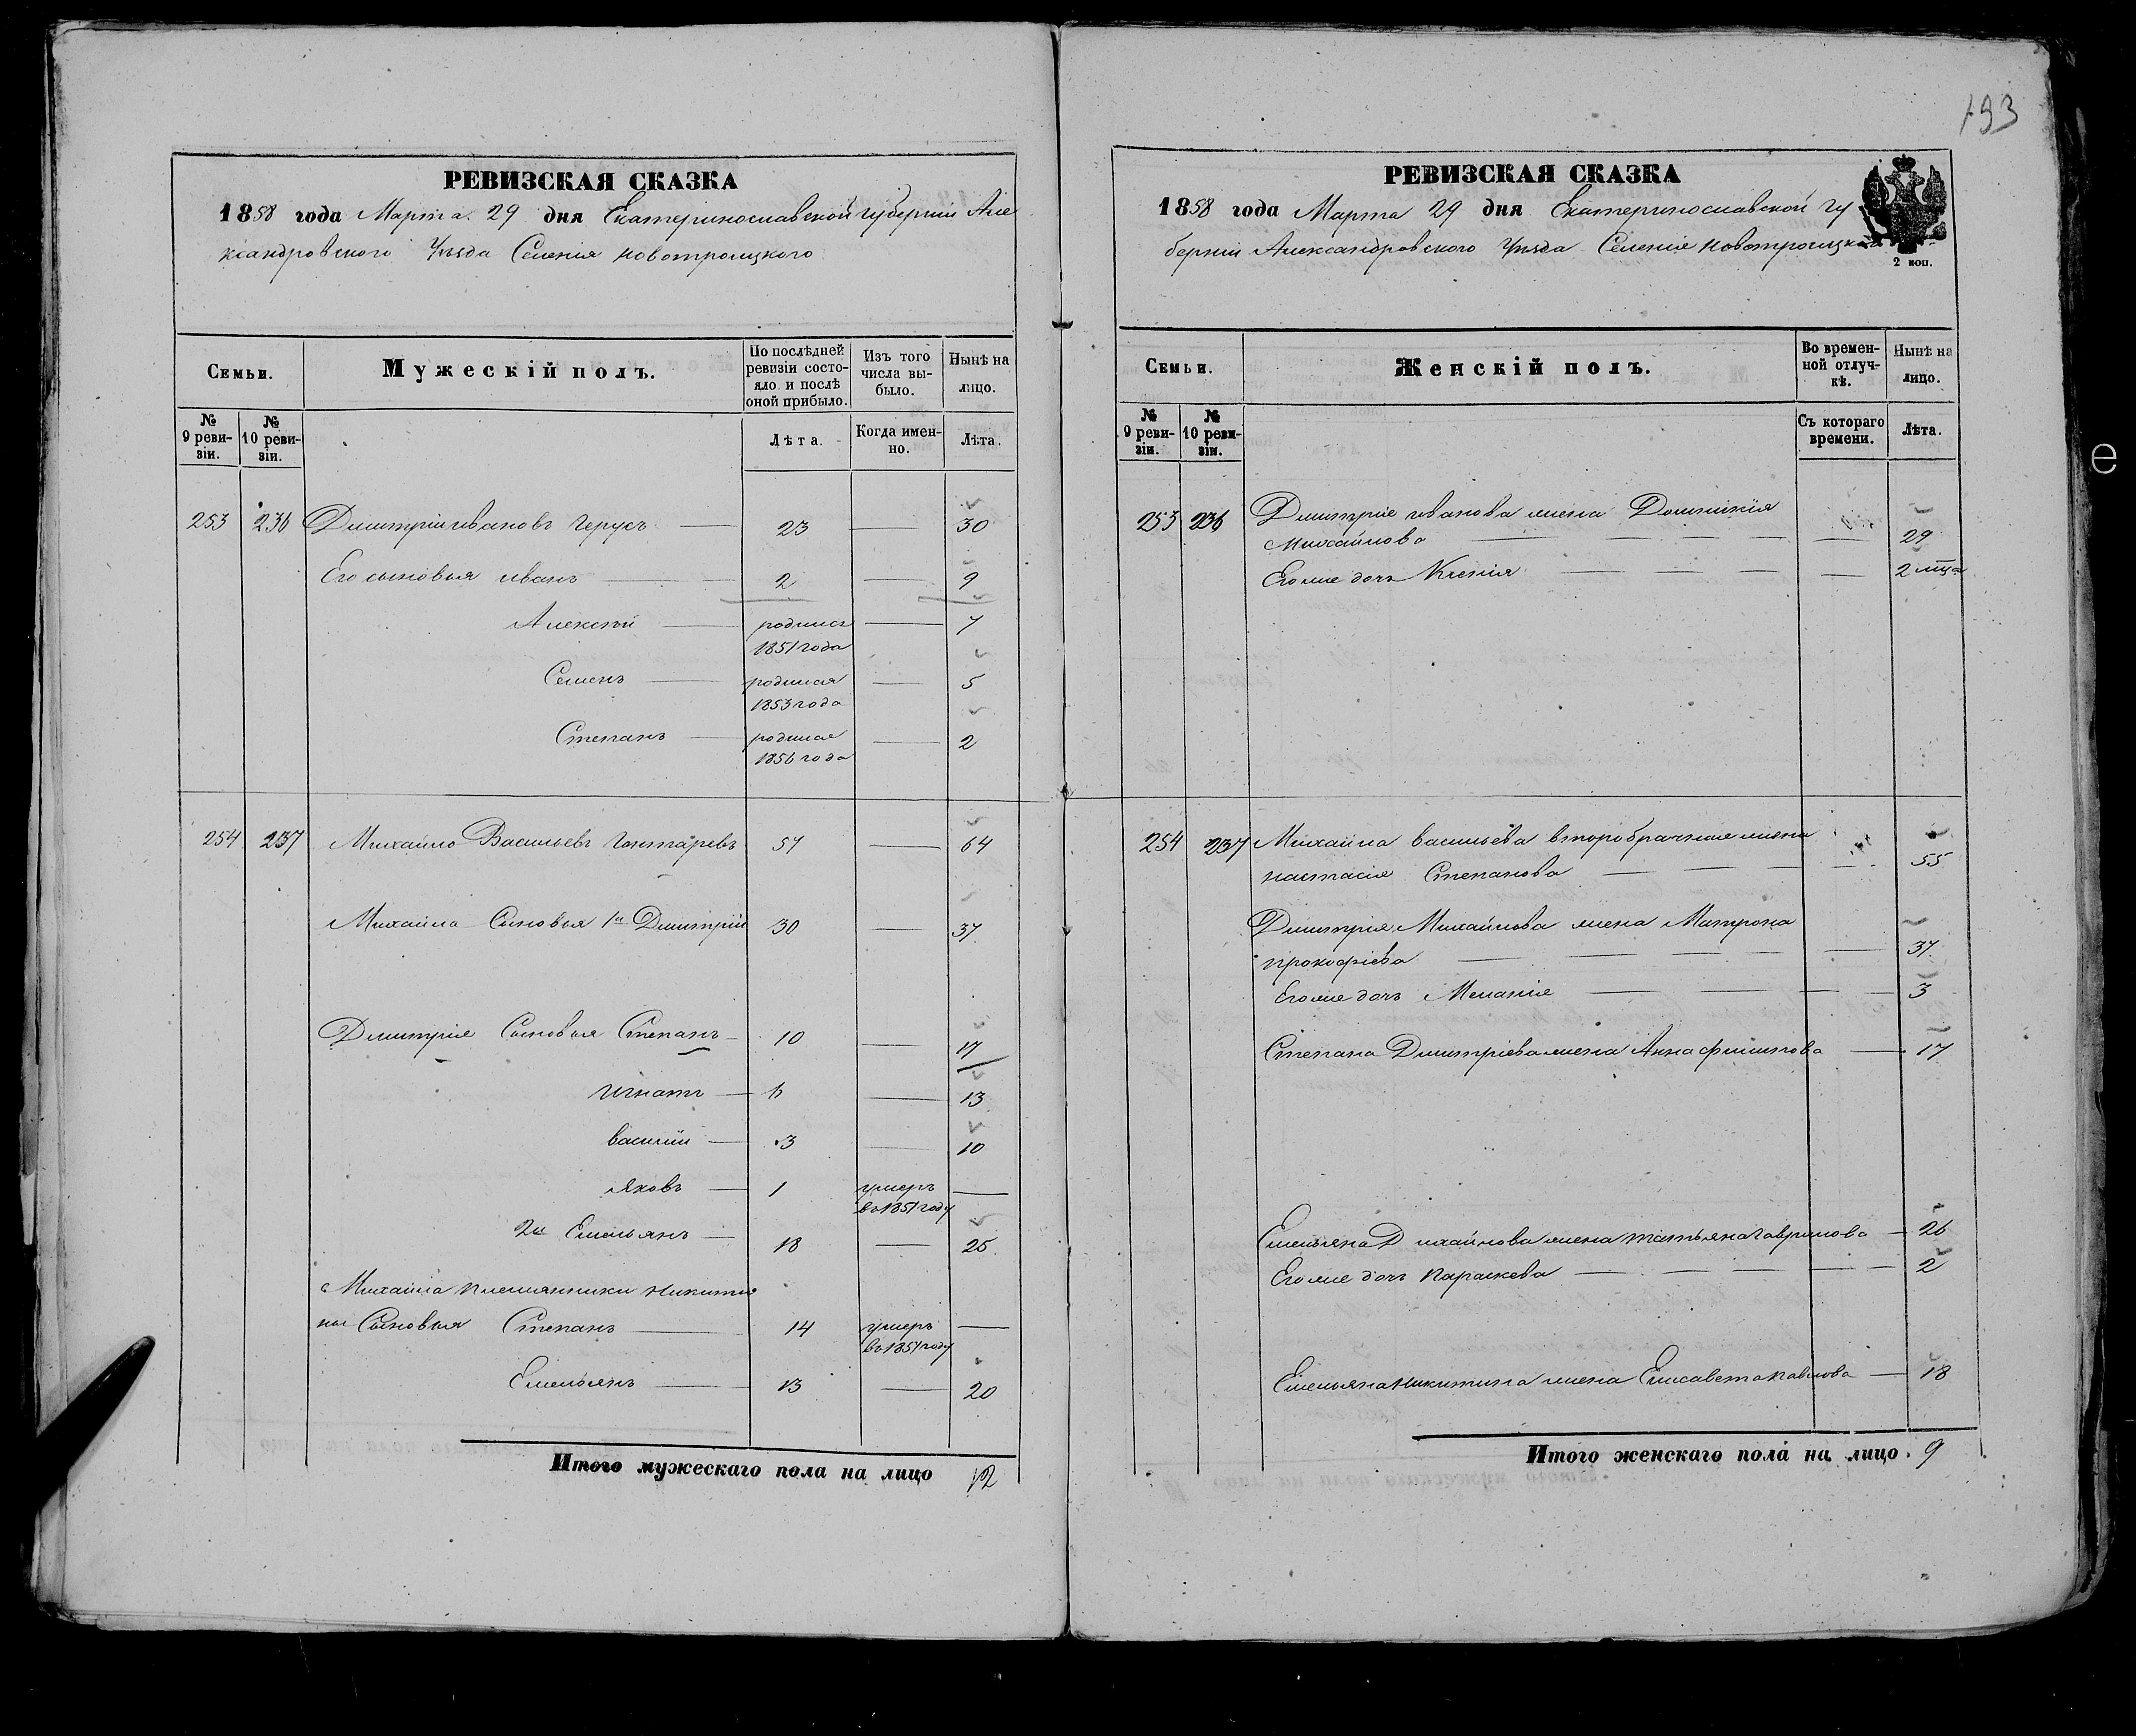 193
РЕВИЗСКАЯ СКАЗКА
1858 года Марта 29 дня Екатеринославской губерніи Але
ксандровского Уѣзда Селенія Новотроицкого
Семьи.
Мужескій полъ.
По послѣдней ревизіи состояло и послѣ оной прибыло.
Изъ того числа выбыло.
Нынѣ на лицо.
№ 9 ревизіи.
№ 10 ревизіи.
Лѣта.
Когда именно.
Лѣта.
253 236 Дмитрій Ивановъ Герусъ 23 — 30
Его сыновья Иванъ 2 — 9
Алексѣй родился 1851 года — 7
Семенъ родился 1853 года — 5
Степанъ родился 1856 года — 2
254 237 Михайло Васильевъ 57 — 64
Михайла Сыновья 1й Дмитрій 30 — 37
Дмитрія Сыновья Степанъ 10 — 17
Игнатъ 6 — 13
Василій 3 — 10
Яковъ 1 умеръ въ 1857 году —
2й Емельянъ 18 — 25
Михайла племянники Никитины
Сыновья Степанъ 14 умеръ въ 1857 году —
Емельянъ 13 — 20
Итого мужескаго пола на лицо 12
РЕВИЗСКАЯ СКАЗКА
1858 года Марта 29 дня Екатеринославской Гу
берніи Александровского Уѣзда Селенія Новотроицкого
2 коп.
Семьи.
Женскій полъ.
Во временной отлучкѣ.
Нынѣ на лицо.
№ 9 ревизіи.
№ 10 ревизіи.
Съ котораго времени.
Лѣта.
253 236 Дмитрія Иванова жена Домникія
Михайлова — 29
Его же дочь Ксенія — 2 мца
254 237 Михайла Васильева второбрачная жена
Настасія Степанова — 55
Дмитрія Михайлова жена Матрона
Прокофіева — 37
Его же дочь Меланія — 3
Степана Дмитріева жена Анна Филипова — 17
Емельяна Михайлова жена Татьяна Гаврилова — 26
Его же дочь Параскева — 2
Емельяна Никитина жена Елисавета Павлова — 18
Итого женскаго пола на лицо. 9
e